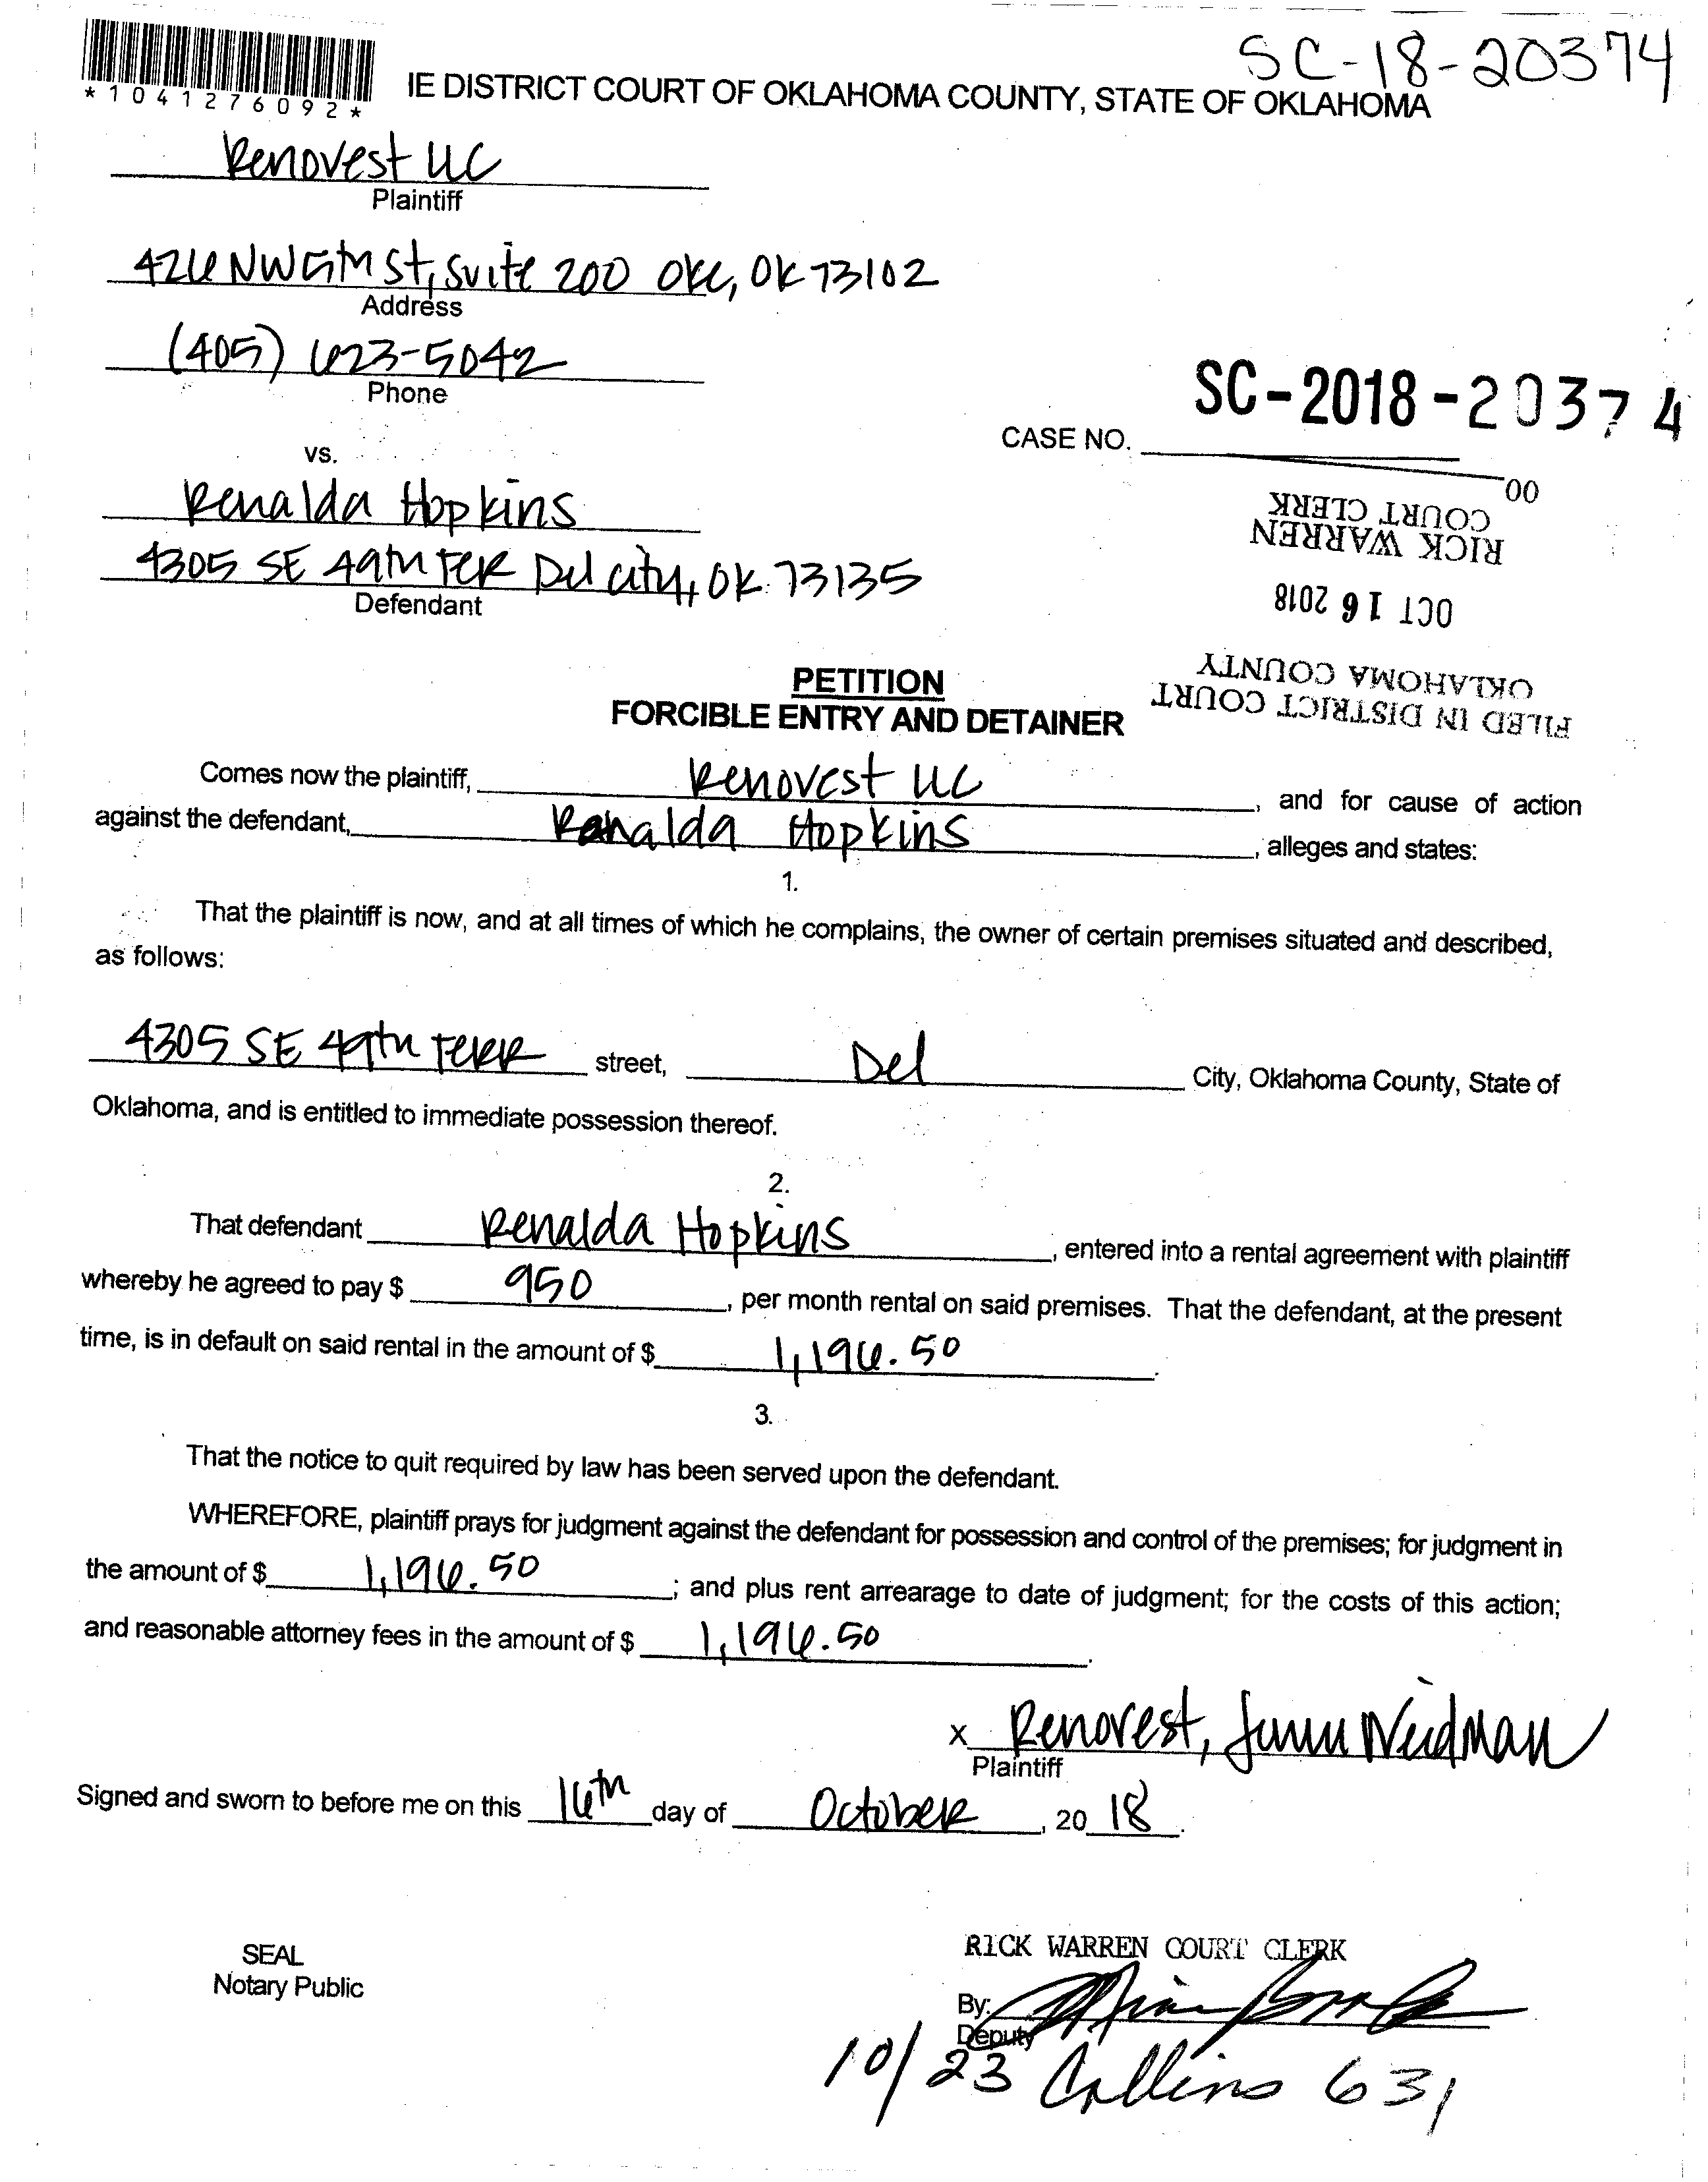 SC-18-20374
*1041276092*
IE DISTRICT COURT OF OKLAHOMA COUNTY, STATE OF OKLAHOMA
Renovest LLC
Plaintiff
426 NW 5th St, Suite 200 OKC, OK 73102
Address
(405) 623-5042
Phone
SC-2018-20374
CASE NO.
vs.
Renalda Hopkins
4305 SE 49th TER Del City, OK 73135
Defendant
FILED IN DISTRICT COURT
OKLAHOMA COUNTY
OCT 16 2018
RICK WARREN
COURT CLERK
00
PETITION
FORCIBLE ENTRY AND DETAINER
Comes now the plaintiff, Renovest LLC, and for cause of action
against the defendant, Renalda Hopkins, alleges and states:
1.
That the plaintiff is now, and at all times of which he complains, the owner of certain premises situated and described,
as follows:
4305 SE 49th TERR street, Del City, Oklahoma County, State of
Oklahoma, and is entitled to immediate possession thereof.
2.
That defendant Renalda Hopkins, entered into a rental agreement with plaintiff
whereby he agreed to pay $ 950, per month rental on said premises. That the defendant, at the present
time, is in default on said rental in the amount of $ 1,196.50.
3.
That the notice to quit required by law has been served upon the defendant.
WHEREFORE, plaintiff prays for judgment against the defendant for possession and control of the premises; for judgment in
the amount of $ 1,196.50; and plus rent arrearage to date of judgment; for the costs of this action;
and reasonable attorney fees in the amount of $ 1,196.50.
x Renovest, Weidman
Plaintiff
Signed and sworn to before me on this 16th day of October, 2018.
SEAL
Notary Public
RICK WARREN COURT CLERK
By:
Deputy
10/23 Collins 631